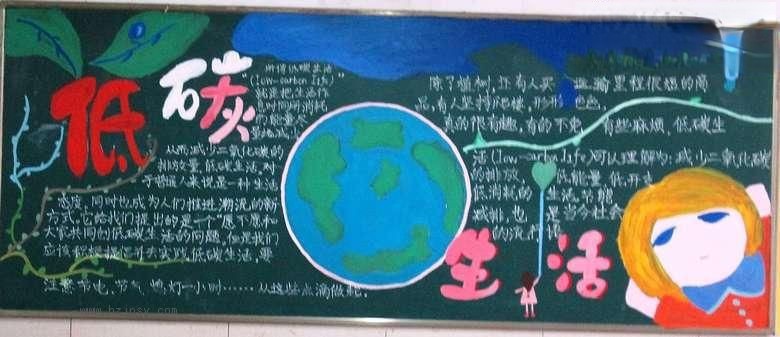 低碳
所谓低碳生活
"(low-carbon life)"
就是把生活作
息时间所消耗
的能量尽
量减少
从而减少二氧化碳的
排放量,低碳生活,对
于普通人来说是一种生活
态度,同时也成为人们推进潮流的新
方式。它给我们提出的是一个"愿不愿和
大家共同创低碳生活的问题,但是我们
应该积极提倡并去实践低碳生活,要
注意节电、节气、熄灯一小时……从这些点滴做起。
除了植树,还有人买 运输里程很短的商
品,有人坚持爬楼,形形 色色,
真的很有趣,有的不免 有些麻烦,低碳生
活(low-carbon life)可以理解为:减少二氧化碳
的排放 低能量,低开支
低消耗的 生活,节能
减排,也 是当今社会
的流行
生活
www.bzjqsy.com